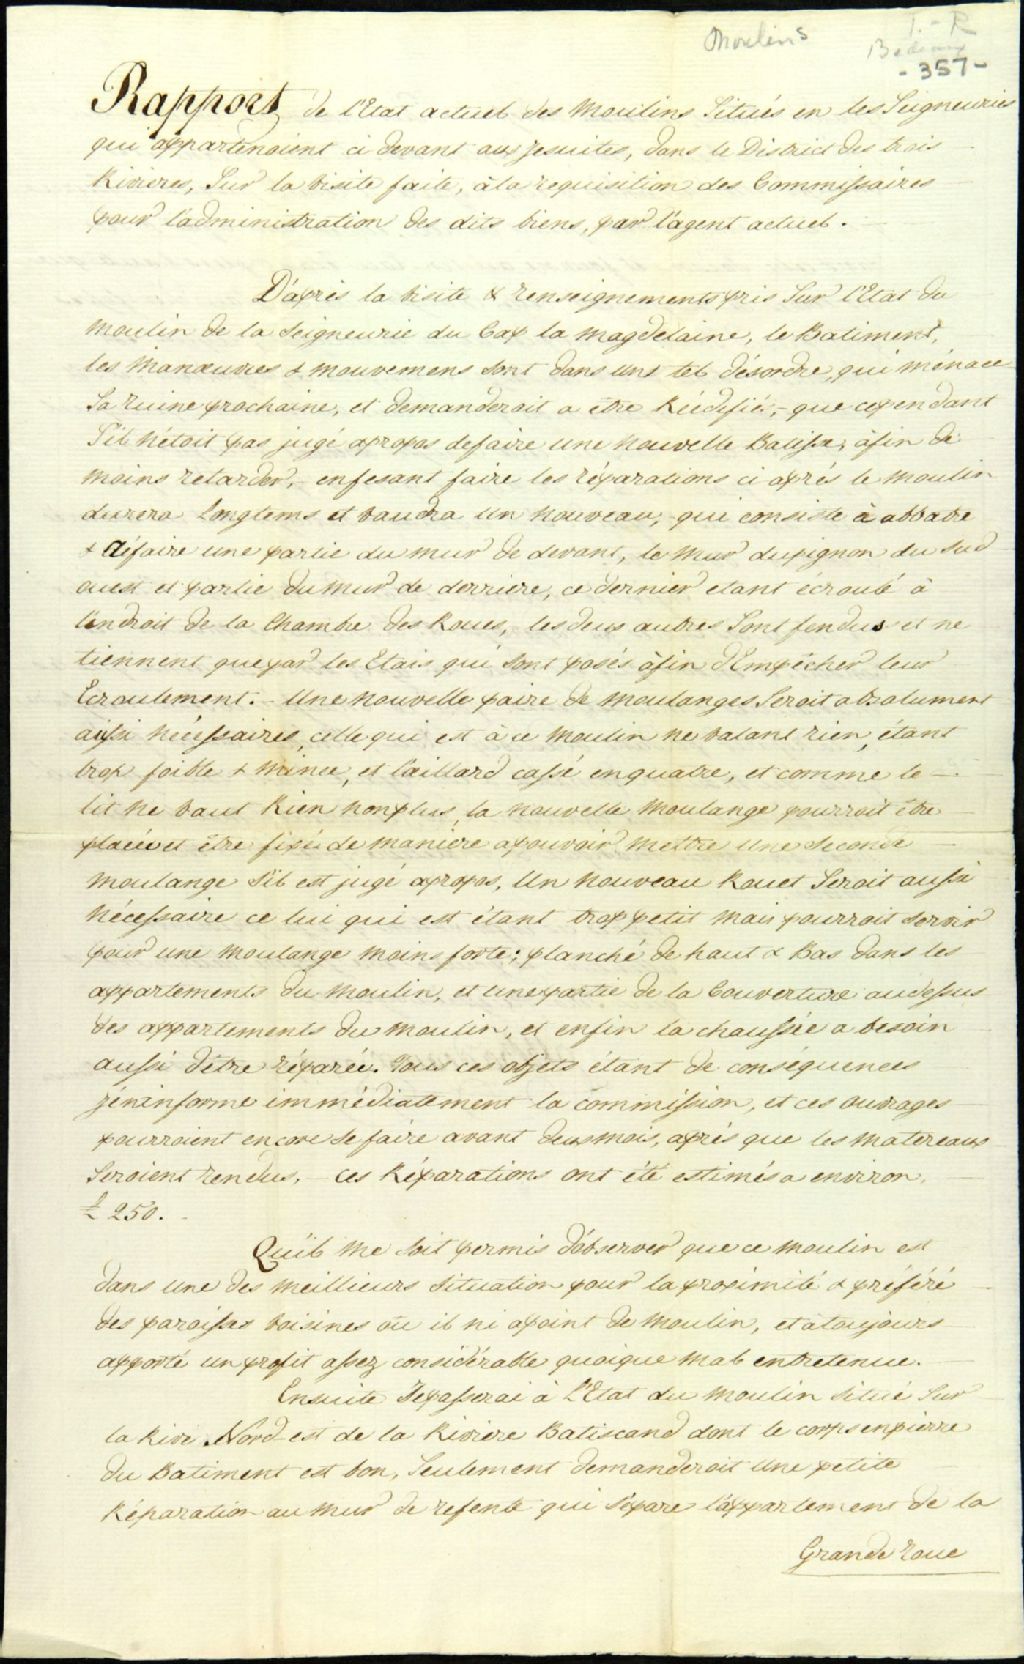 Moulins
T.-R
- 357 -
Rapport de l'Etat actuel des Moulins Situés en les Seigneuries
qui appartenoient ci devant aux Jesuites, dans le District des trois
Rivieres, Sur la visite faite, à la requisition des Commissaires
pour l'administration des dits biens, par l'agent actuel. —
D'après la visite & renseignements pris Sur l'Etat du
Moulin de la Seigneurie du Cap la Magdelaine, le Batiment,
les Manœuvres & mouvemens sont dans uns tel désordre, qui ménace
Sa ruine prochaine, et demanderoit a être Réédifié, - que cependant
S'il N'étoit pas jugé apropos de faire une nouvelle Batisse, àfin de
moins retarder, - enfesant faire les réparations ci après le moulin
durera Longtems et vaudra un nouveau, - qui consiste à abbatre
& défaire une partie du mur de devant, le Mur du pignon du Sud
ouest et partie du Mur de derriere, ce dernier etant écroulé à
l'endroit de la Chambre des Roues, les deux autres Sont fendus et ne
tiennent que par les Etais qui sont posés àfin d'Empêcher leur
Ecroulement. - Une nouvelle paire de moulanges Seroit absolument
aussi nécessaires, celle qui est à ce Moulin ne valant rien, étant
trop foible & mince, et l'aillard cassé en quatre, et comme le —
lit ne vaut Rien nonplus, la nouvelle moulange pourroit être
placée et être fixée de maniere a pouvoir mettre une seconde
moulange s'il est jugé apropos, Un nouveau Rouet Seroit aussi
Nécessaire celui qui est étant trop petit mais pourroit servir
pour une moulange moins forte; planché de haut & Bas dans les
appartements du Moulin, et une partie de la Couverture audessus
des appartements du Moulin, et enfin la chaussée a besoin
aussi d'être réparée. Tous ces objets étant de conséquences
j'en informe immédiatement la commission, et ces ouvrages
pourroient encore se faire avant deux mois, après que les matereaux
Seroient rendus, - ces Réparations ont été estimés a environ
£ 250. -
Qu'il me soit permis d'observer que ce moulin est
dans une des meillieurs situation pour la proximité & préféré
des paroisses voisines où il ni a point de Moulin, et a toujours
apporté un profit assez considérable quoique mal entretenue.
Ensuite Je passerai à l'Etat du Moulin situé Sur
la Rive Nord-est de la Riviere Batiscand dont le corps en pierre
du Batiment est bon, Seulement demanderoit une petite
Réparation au Mur de refente qui sépare l'appartement de la
Grande roue